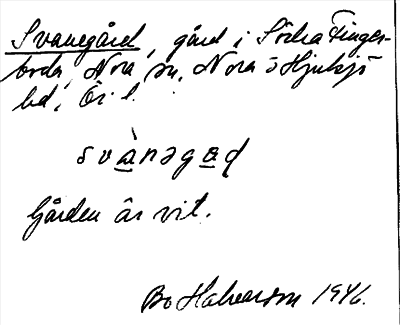 Svanegård, gård i Södra Finger-
boda, Nora sn, Nora o Hjulsjö
bd, Ör l.
svànəgɑd
Gården är vit.
Bo Halvarson 1946.